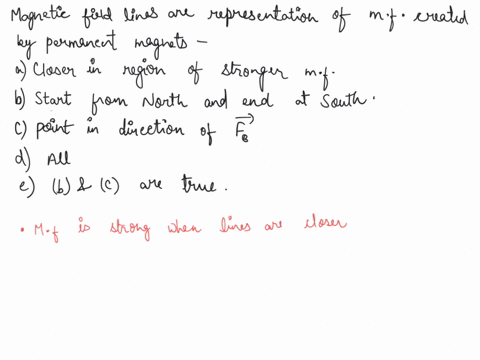 Magnetic field lines are representation of m.f. created
by permanent magnets —
a) Closer in region of stronger m.f.
b) Start from North and end at South.
c) point in direction of F⃗_B
d) All
e) (b) & (c) are true.
• M.f is strong when lines are closer